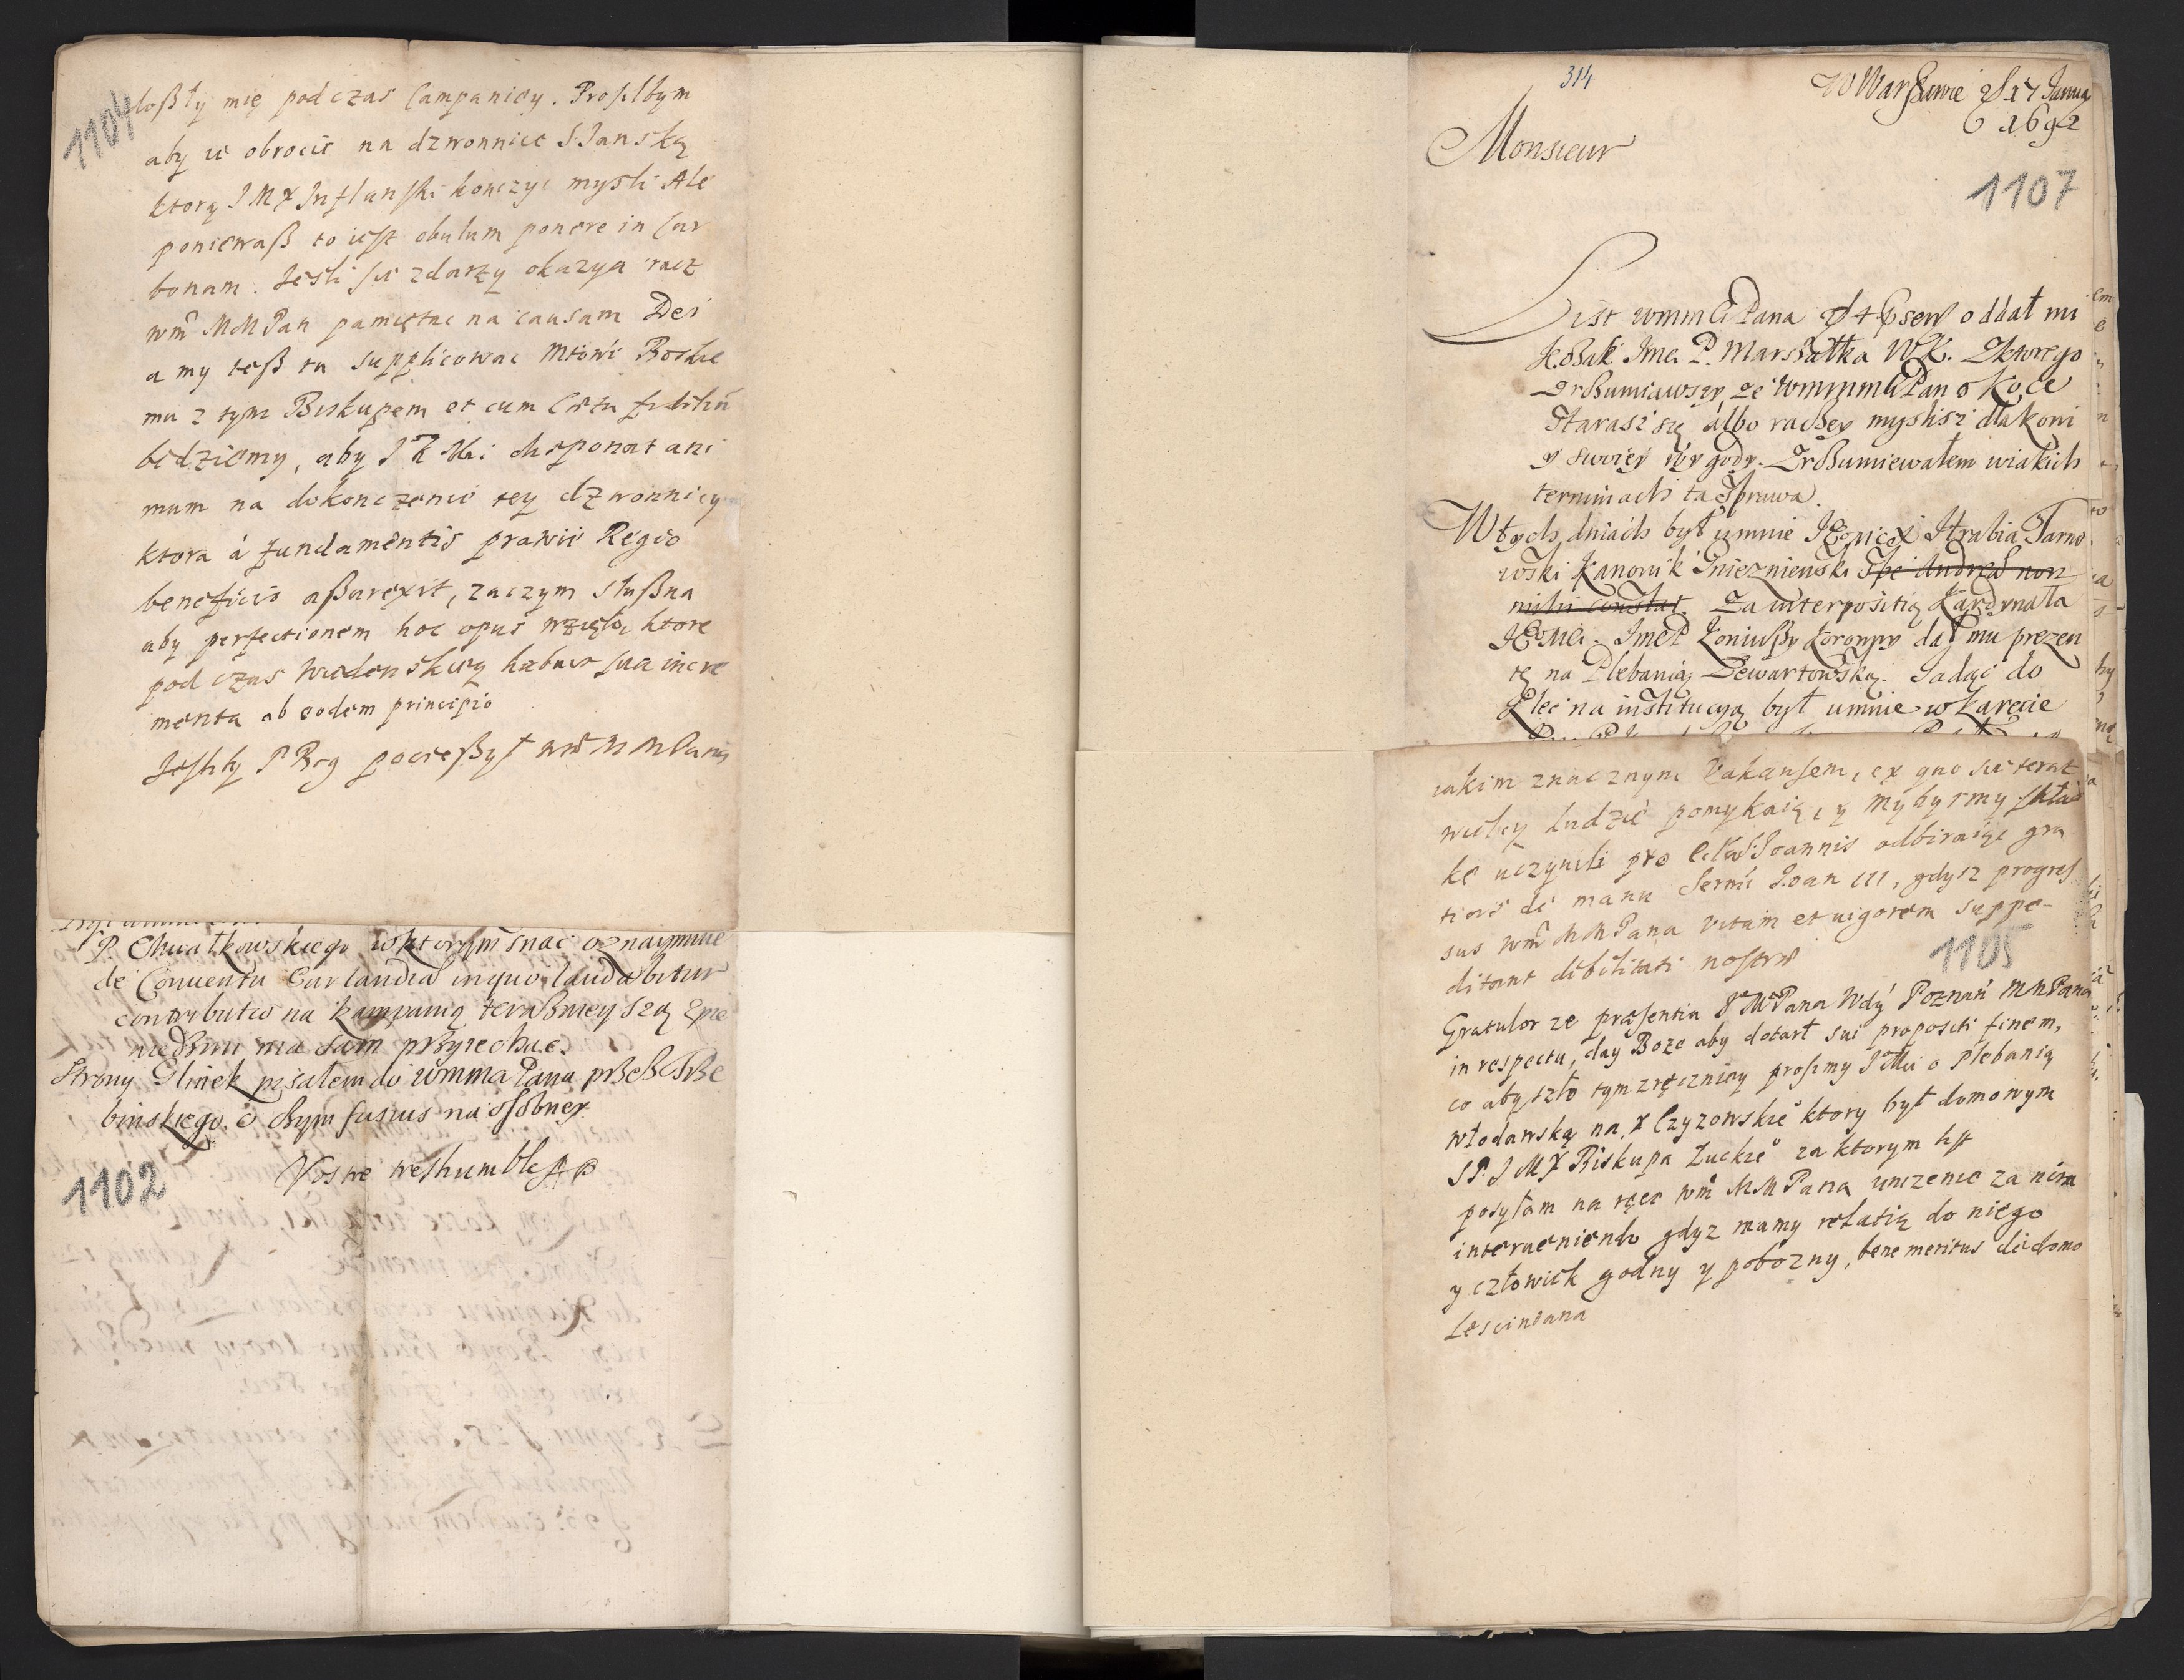 1104
doßły mię podczas Campaniey. Prosilbym
aby ie obrocić na dzwonnice S. Jańską
ktorą J M X Inflanski konczyc mysli Ale
poniewaß to iest obulum ponere in Car
bonam. Jesli sie zdarzy okazya racz
wm̃ MM Pan pamiętac na causam Dei
a my teß tu supplicowac Młowi Boskie
mu z tym Biskupem et cum Cætu fidelium
bedziemy, aby J K Mci disponat ani
mum na dokonczenie tey dzwonnicy
ktora à fundamentis prawie Regio
beneficio aßurexit, zaczym slußna
aby perfectionem hoc opus wzięło, ktore
pod czas Wiedenskiey habuit sua incre
menta ab eodem principio
Jesliby P Bog pocießył wm̃ M M Pana
P. Chwałkowskiego, w ktorym snac oznaymuie
de Conventu Curlandiæ in quo laudabitur
contributio na kampanią teraßnieyszą
ma sam przyiechac.
Strony Glinek pisałem do wmmm Pana przeß
binskiego. o czym fusius na osobney
Vostre treshumble
1102
314
W Warßawie d 17 Janua
1692
Monsieur
1107
List wmmm Pana oddał mi
Kozak Jmci P. Marszałka WK. Z ktorego
zrozumiawszy, ze wmmm Pan o Koce
starasz się albo raczey myslisz dla koni
y swoiey wygody. Zrozumiewałem w iakich
terminach ta sprawa.
W tych dniach był u mnie JEgomość X Hrabia Tarno
wski Kanonik Gnieznienski spe
mihi constat. Za interpositią Kardynała
JEgoMci. Jmci P Koniußy Koronny dał mu prezen
tę na Plebanią Dewartowską. Jadąc do
Kielc na institucyą był u mnie w karecie
iakim znacznym Vakansem, ex quo sie teraz
wielcy ludzie pomykaią, y mybysmy skład
ke uczynili pro Ecclā S: Joannis odbiraiąc gra
tias de manu Sermi Joan III, gdysz progres
sus wm̃ MM Pana vitam et vigorem suppe-
ditant debilitati nostræ
1105
Gratulor ze præsentia J M Pana Wdy Poznań M M Pana
in respectu, day Boze aby dotarł sui propositi finem,
co aby szło tym zręczniey prosimy J K Mci o Plebanią
włodawską na X Czyzowskie° ktory był domowym
S P. J M X Biskupa Łuckie° za ktorym list
posyłam na ręce wm̃ MM Pana uniżenie za nim
interveniendo gdyz mamy relatią do niego
y człowiek godny y pobożny, bene meritus de domo
Lesciniana